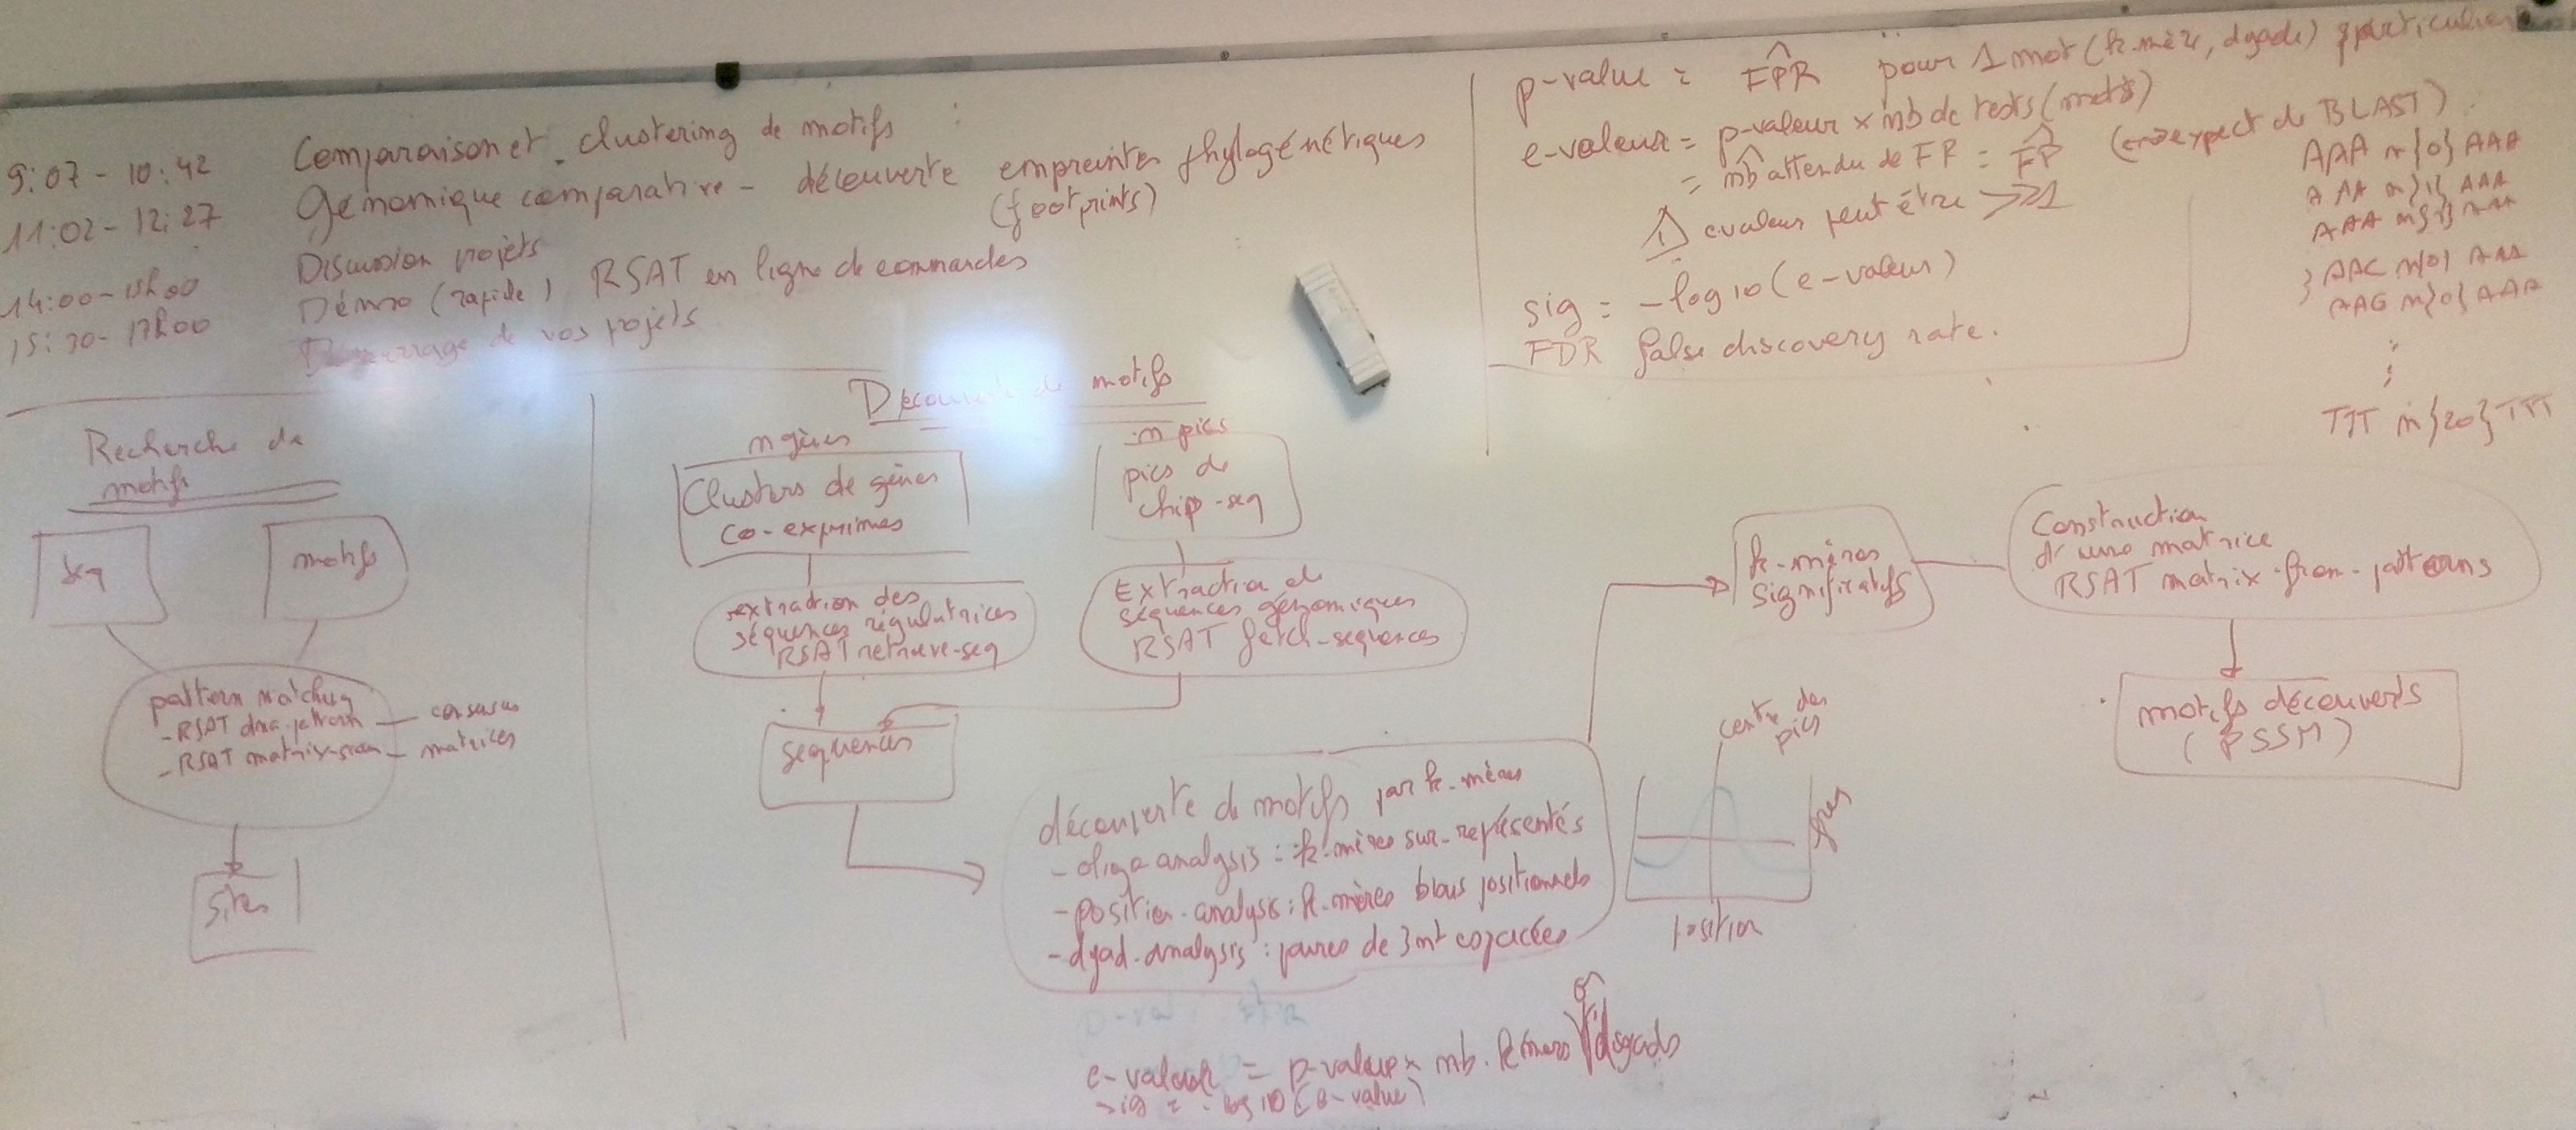 9:07 - 10:42 Comparaison et clustering de motifs :
11:02 - 12:27 Génomique comparative - découverte empreintes phylogénétiques
(footprints)
14:00 - 15h00 Discussion projets
Démo (rapide) RSAT en ligne de commandes
15:30 - 17h00 Démarrage de vos projets
p-value = FPR pour 1 mot (k-mère, dyade) particulier
e-valeur = p-valeur × nb de tests (mots)
= nb attendu de FP = FP (expect de BLAST)
⚠ evaleur peut être >> 1
sig = -log10 (e-valeur)
FDR false discovery rate.
AAA n{0} AAA
AAA n{1} AAA
AAA n{2} AAA
AAC n{0} AAA
AAG n{0} AAA
TTT n{20} TTT
Recherche de
motifs
seq
motifs
pattern matching
- RSAT dna-pattern — consensus
- RSAT matrix-scan — matrices
sites
Découverte de motifs
n gènes
Clusters de gènes
co-exprimés
n pics
pics de
chip-seq
extraction des
séquences régulatrices
RSAT retrieve-seq
Extraction de
séquences génomiques
RSAT fetch-sequences
séquences
découverte de motifs par k-mères
- oligo-analysis : k-mères sur-représentés
- position-analysis : k-mères biais positionnels
- dyad-analysis : paires de 3nt espacées
centre des
pics
position
k-mères
significatifs
Construction
d'une matrice
RSAT matrix-from-patterns
motifs découverts
(PSSM)
e-value = p-value × nb. kmers dyads
sig = -log10 (e-value)